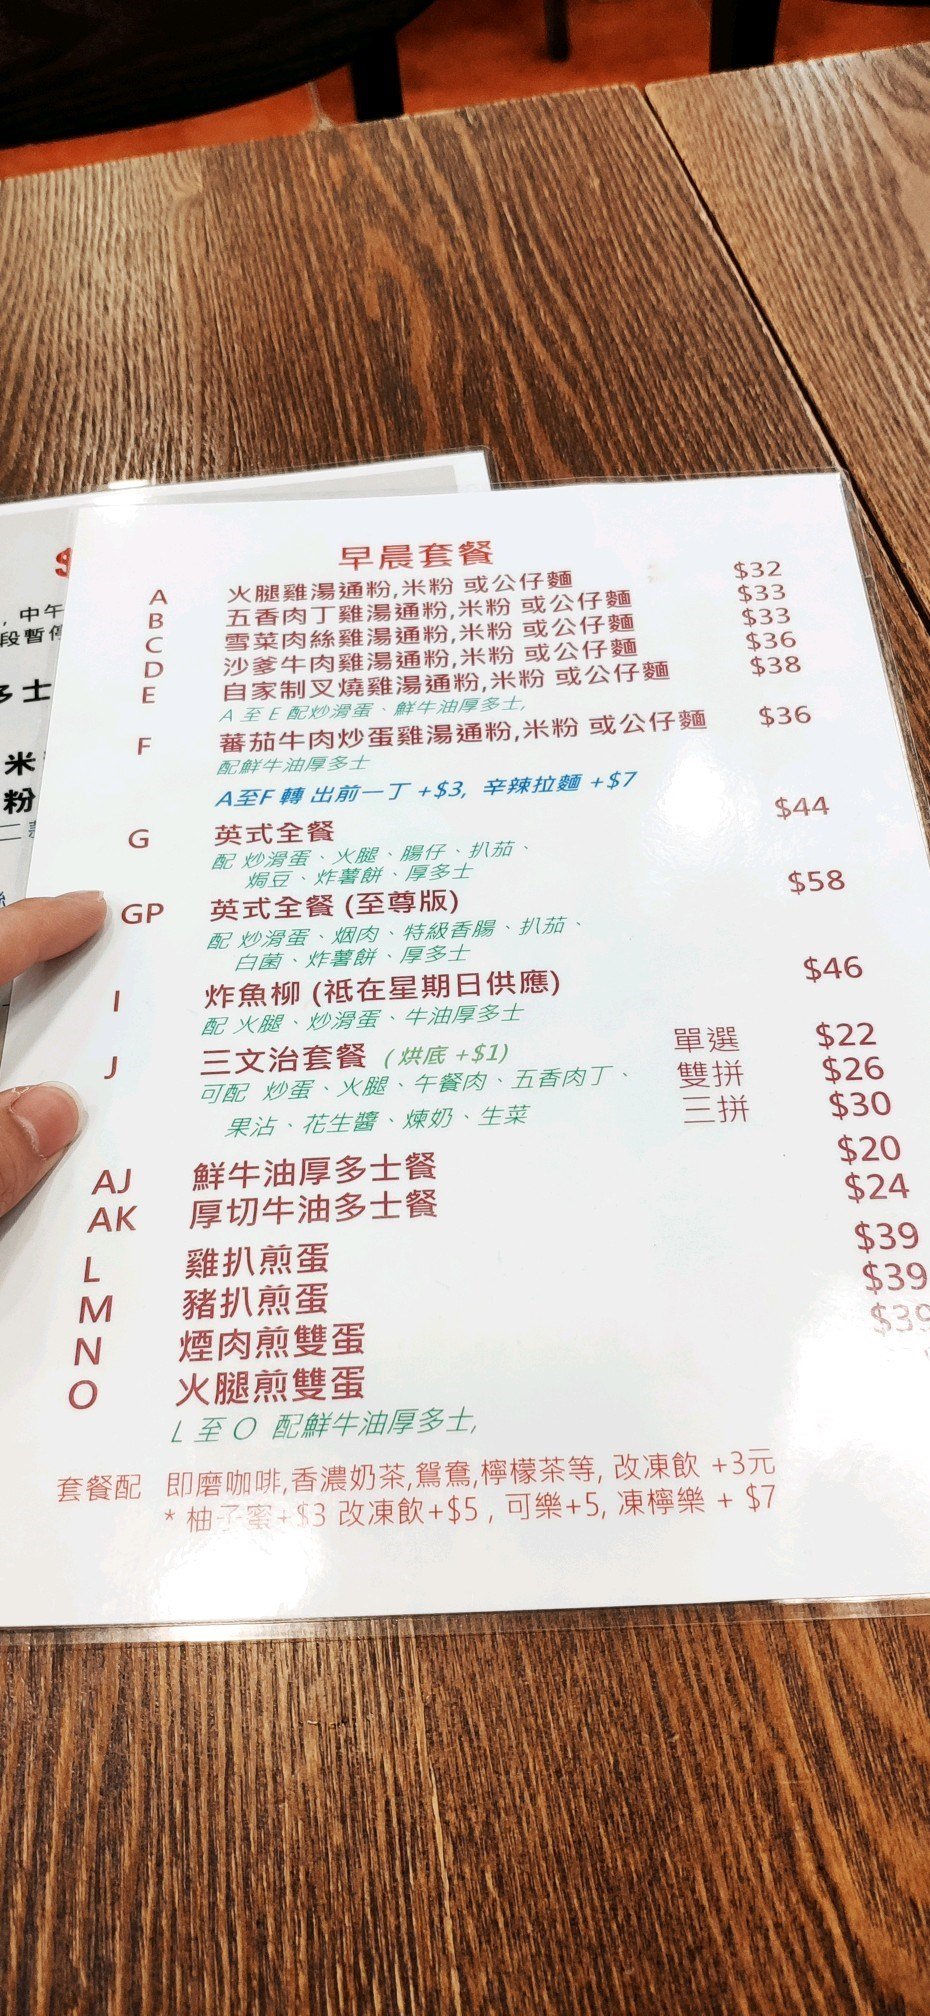 $
, 中午
段暫停
多士
米
粉
早晨套餐
A 火腿雞湯通粉,米粉 或公仔麵 $32
B 五香肉丁雞湯通粉,米粉 或公仔麵 $33
C 雪菜肉絲雞湯通粉,米粉 或公仔麵 $33
D 沙爹牛肉雞湯通粉,米粉 或公仔麵 $36
E 自家制叉燒雞湯通粉,米粉 或公仔麵 $38
A 至 E 配炒滑蛋、鮮牛油厚多士,
F 蕃茄牛肉炒蛋雞湯通粉,米粉 或公仔麵 $36
配鮮牛油厚多士
A至F 轉 出前一丁 +$3, 辛辣拉麵 +$7
G 英式全餐 $44
配 炒滑蛋、火腿、腸仔、扒茄、
焗豆、炸薯餅、厚多士
GP 英式全餐 (至尊版) $58
配 炒滑蛋、烟肉、特級香腸、扒茄、
白菌、炸薯餅、厚多士
I 炸魚柳 (祗在星期日供應) $46
配 火腿、炒滑蛋、牛油厚多士
J 三文治套餐 (烘底 +$1) 單選 $22
可配 炒蛋、火腿、午餐肉、五香肉丁、 雙拼 $26
果沾、花生醬、煉奶、生菜 三拼 $30
AJ 鮮牛油厚多士餐 $20
AK 厚切牛油多士餐 $24
L 雞扒煎蛋 $39
M 豬扒煎蛋 $39
N 煙肉煎雙蛋 $39
O 火腿煎雙蛋
L 至 O 配鮮牛油厚多士,
套餐配 即磨咖啡,香濃奶茶,鴛鴦,檸檬茶等, 改凍飲 +3元
* 柚子蜜+$3 改凍飲+$5 , 可樂+5, 凍檸樂 + $7